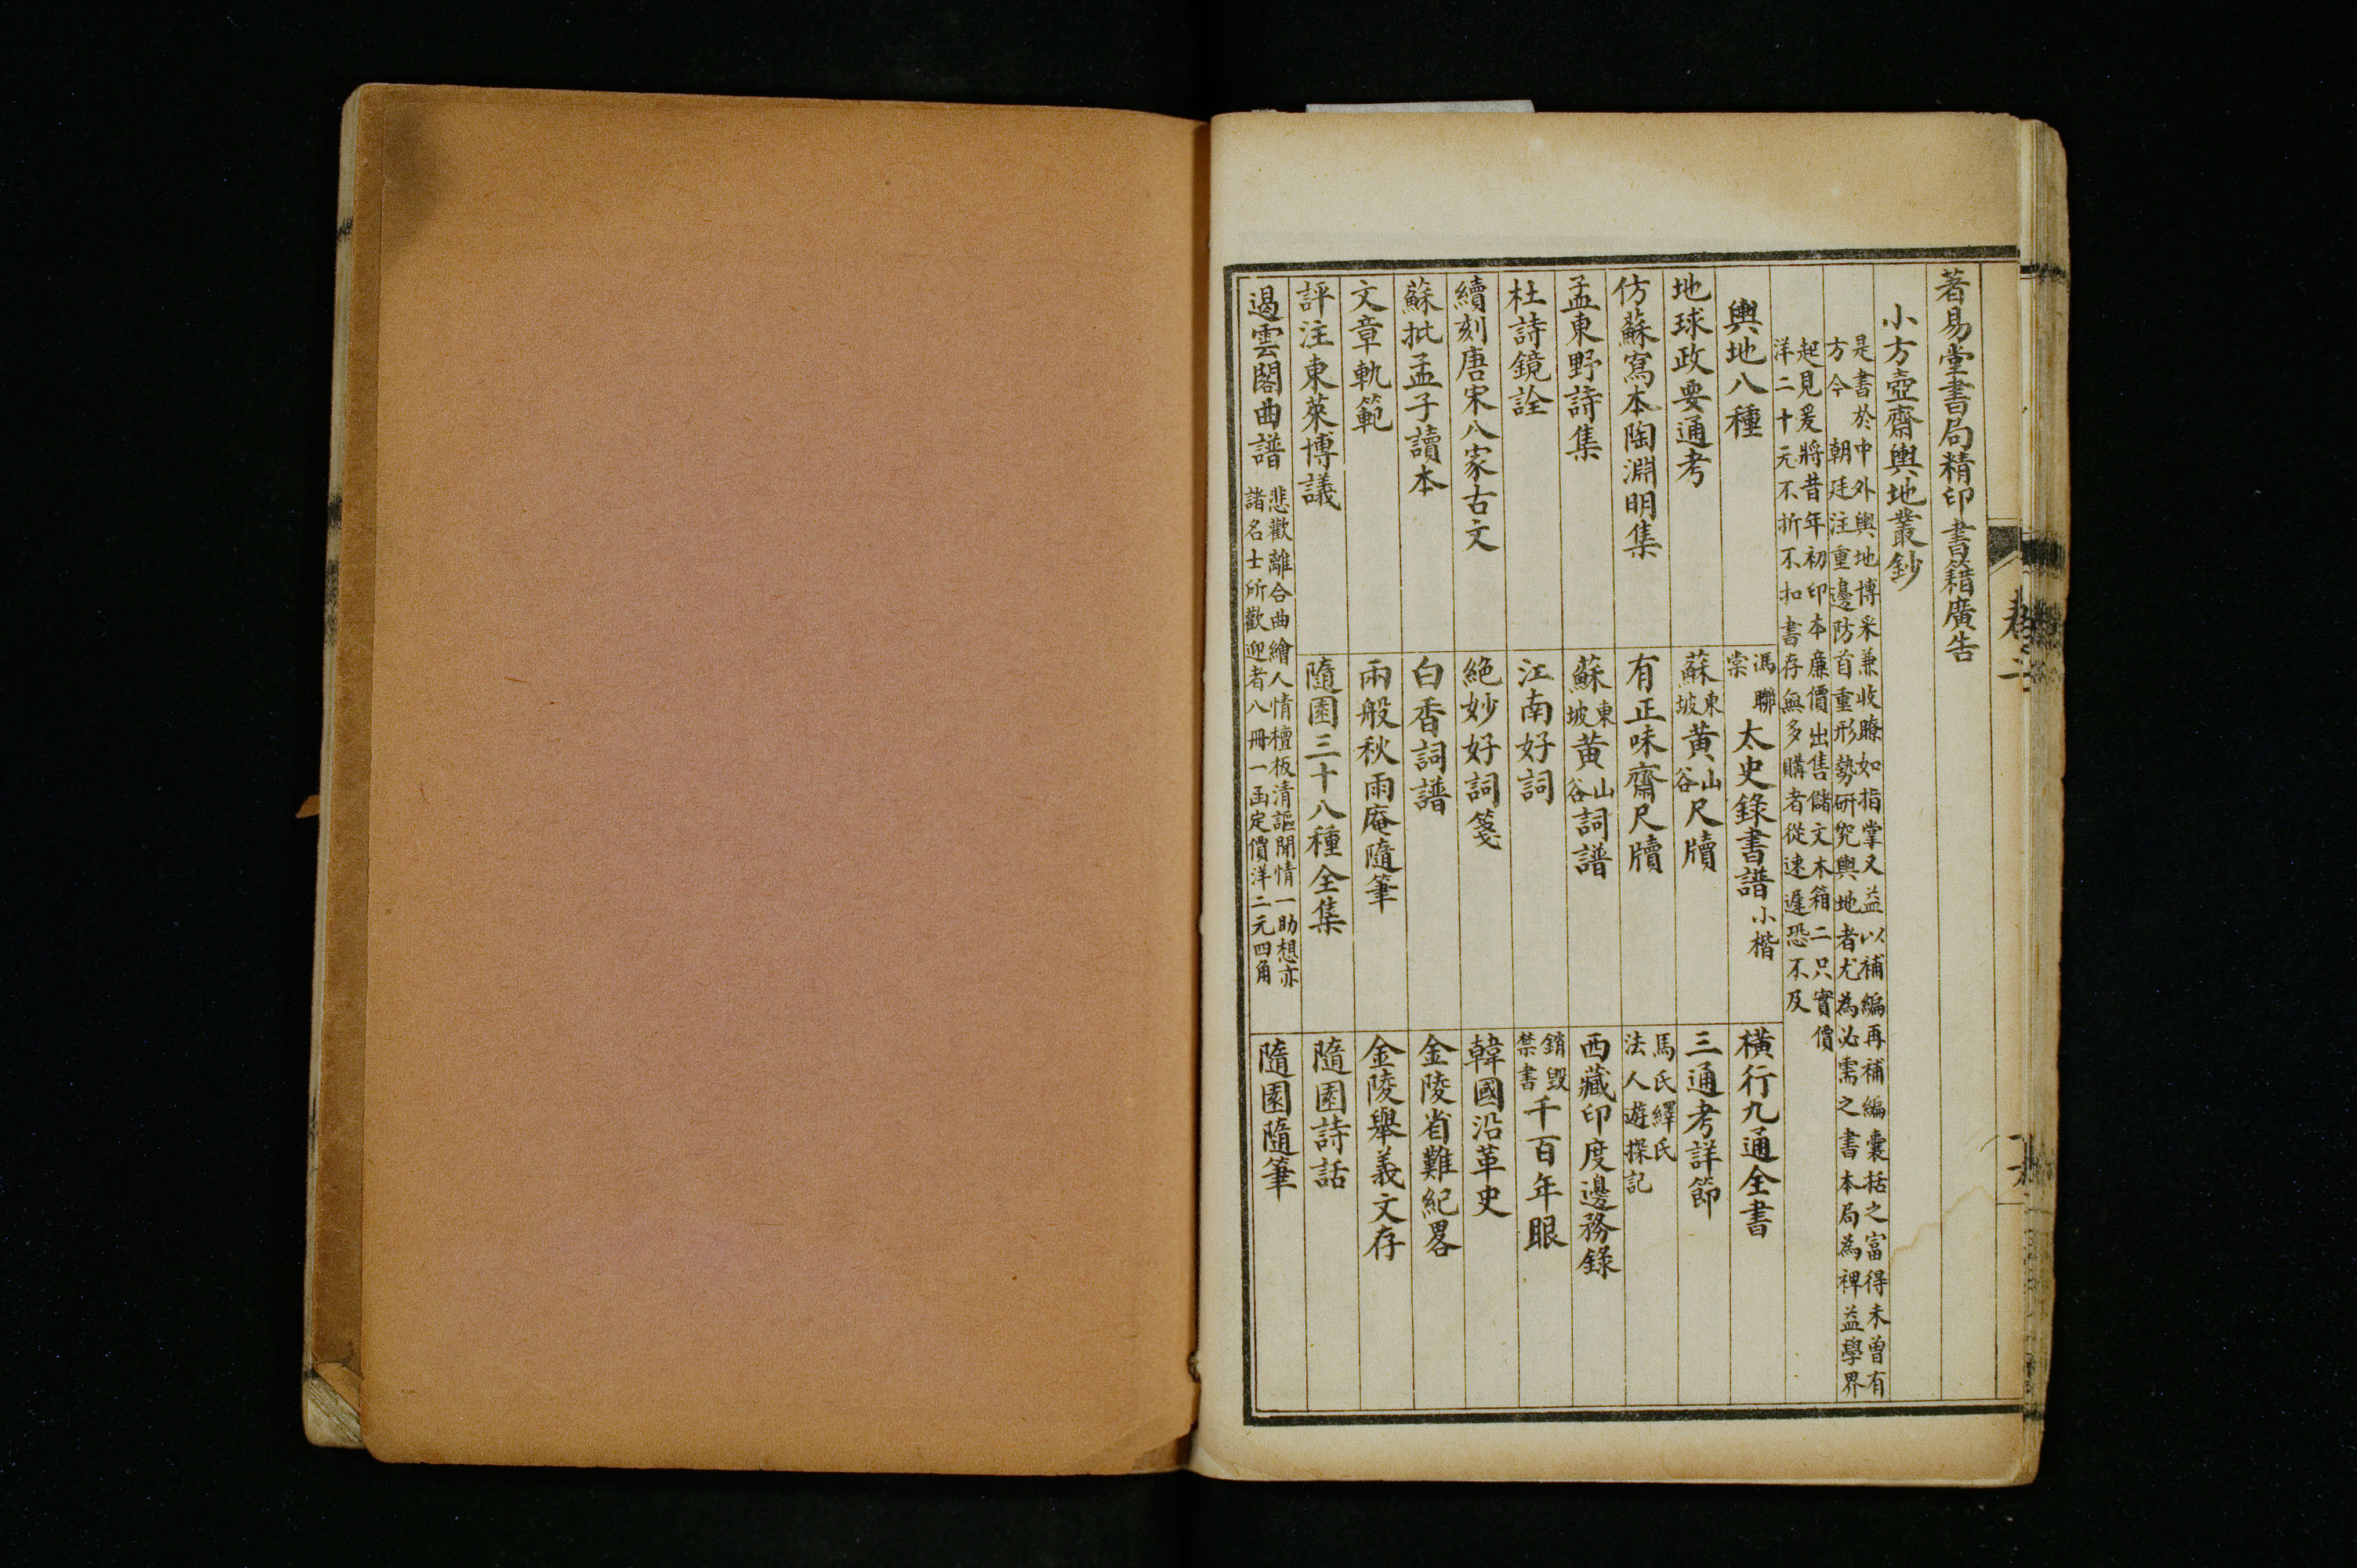 著易堂書局精印書籍廣告
小方壺齋輿地叢鈔
是書於中外輿地博采兼收瞭如指掌又益以補編再補編囊括之富得未曾有
方今 朝廷注重邊防首重形勢研究輿地者尤為必需之書本局為裨益學界
起見爰將昔年初印本廉價出售儲文木箱二只實價
洋二十元不折不扣書存無多購者從速遲恐不及
輿地八種
馮聯棠太史錄書譜小楷
橫行九通全書
地球政要通考
蘇東坡黃山谷尺牘
三通考詳節
仿蘇寫本陶淵明集
有正味齋尺牘
馬氏繹氏法人遊探記
孟東野詩集
蘇東坡黃山谷詞譜
西藏印度邊務錄
杜詩鏡詮
江南好詞
銷毀禁書千百年眼
續刻唐宋八家古文
絕妙好詞箋
韓國沿革史
蘇批孟子讀本
白香詞譜
金陵省難紀畧
文章軌範
兩般秋雨庵隨筆
金陵舉義文存
評注東萊博議
隨園三十八種全集
隨園詩話
遏雲閣曲譜
悲歡離合曲繪人情檀板清謳閒情一助想亦
諸名士所歡迎者八冊一函定價洋二元四角
隨園隨筆